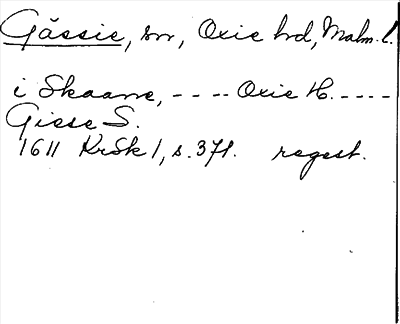 Gässie, sn, Oxie hd, Malm. l.
i Skaane, - - - - Oxie H. - - - - -
Giese S.
1611 KrSk 1, s. 371. regest.